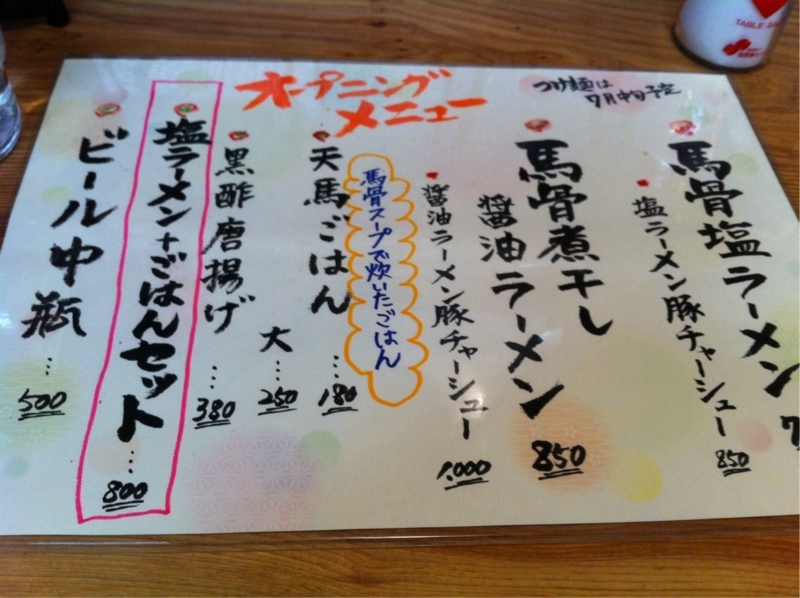 オープニング
メニュー
つけ麺は
7月中旬予定
馬骨塩ラーメン 7
塩ラーメン豚チャーシュー 850
馬骨煮干し
醤油ラーメン 850
醤油ラーメン豚チャーシュー 1,000
馬骨スープで炊いたごはん
天馬ごはん … 180
大 … 250
黒酢唐揚げ … 380
塩ラーメン+ごはんセット … 800
ビール中瓶 … 500
TABLE